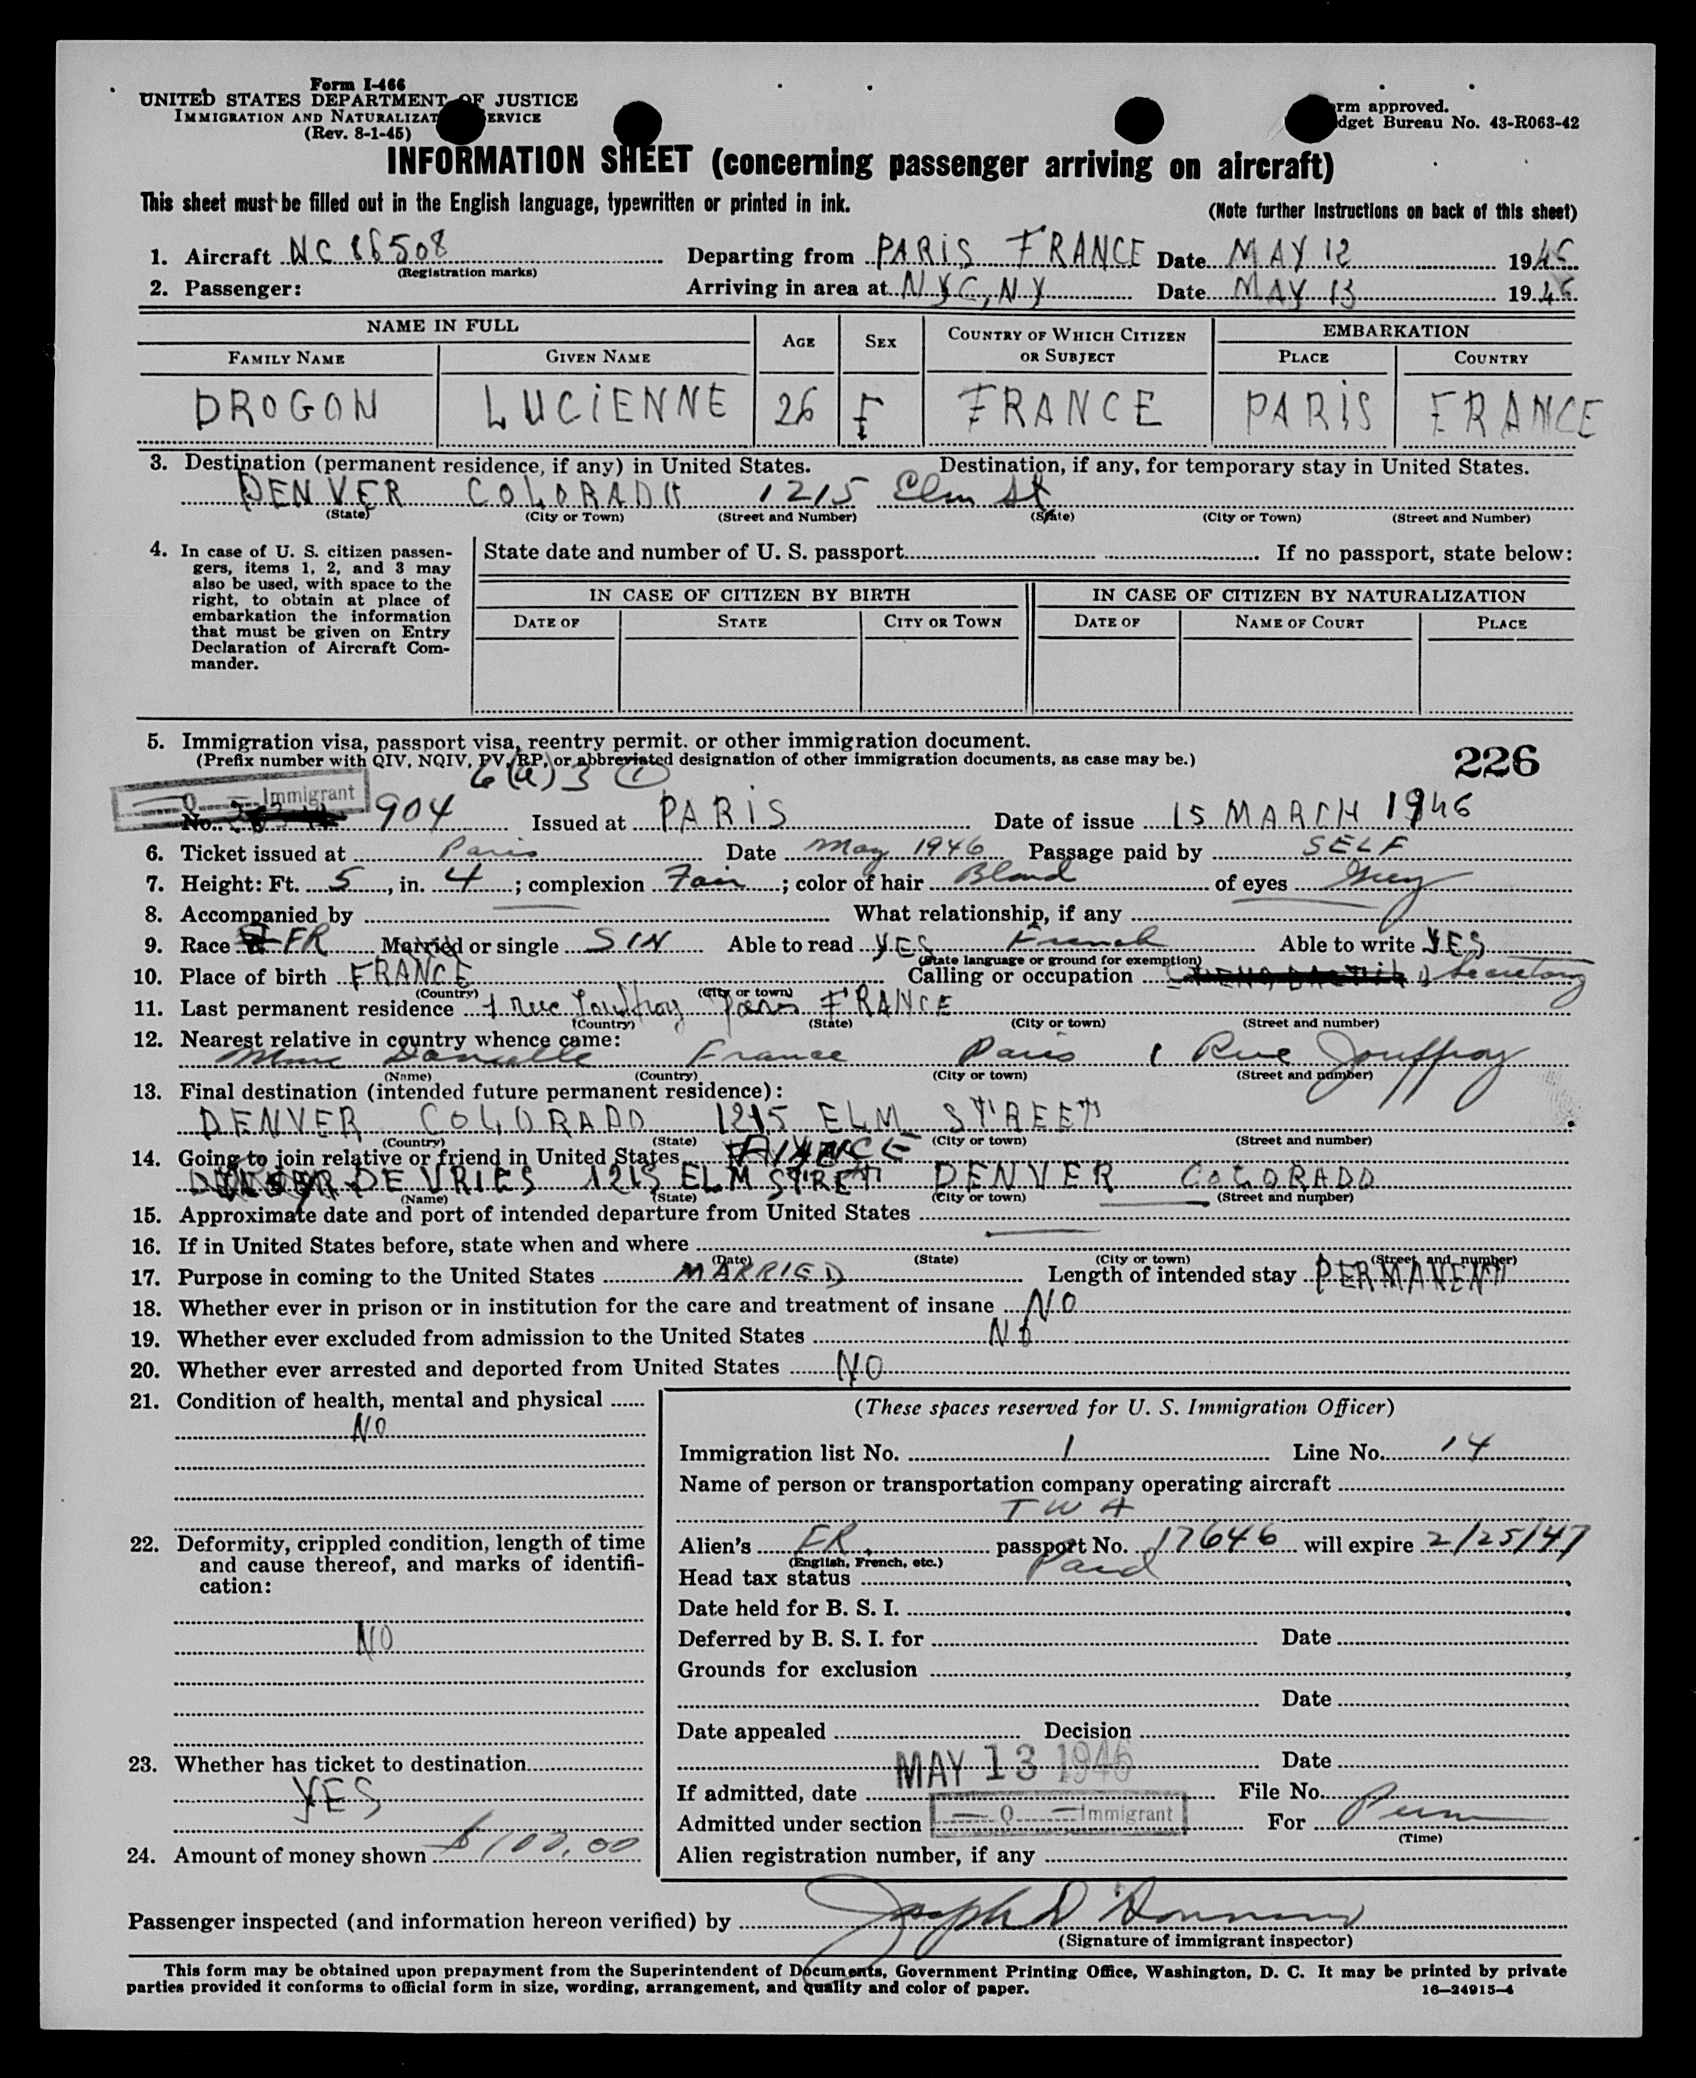 Form I-466
UNITED STATES DEPARTMENT OF JUSTICE
IMMIGRATION AND NATURALIZAT ERVICE
(Rev. 8-1-45)
rm approved.
dget Bureau No. 43-R063-42
INFORMATION SHEET (concerning passenger arriving on aircraft)
This sheet must be filled out in the English language, typewritten or printed in ink.
(Note further instructions on back of this sheet)
1. Aircraft NC 86508 Departing from PARIS FRANCE Date MAY 12 1946
(Registration marks)
2. Passenger: Arriving in area at NYC, NY Date MAY 13 1946
NAME IN FULL AGE SEX COUNTRY OF WHICH CITIZEN OR SUBJECT EMBARKATION
FAMILY NAME GIVEN NAME PLACE COUNTRY
DROGON LUCIENNE 26 F FRANCE PARIS FRANCE
3. Destination (permanent residence, if any) in United States. Destination, if any, for temporary stay in United States.
DENVER COLORADO 1215 Elm St
(State) (City or Town) (Street and Number) (State) (City or Town) (Street and Number)
4. In case of U. S. citizen passen-
gers, items 1, 2, and 3 may
also be used, with space to the
right, to obtain at place of
embarkation the information
that must be given on Entry
Declaration of Aircraft Com-
mander.
State date and number of U. S. passport If no passport, state below:
IN CASE OF CITIZEN BY BIRTH IN CASE OF CITIZEN BY NATURALIZATION
DATE OF STATE CITY OR TOWN DATE OF NAME OF COURT PLACE
5. Immigration visa, passport visa, reentry permit, or other immigration document.
(Prefix number with QIV, NQIV, PV, RP, or abbreviated designation of other immigration documents, as case may be.)
226
6(a) 3 (1)
Q Immigrant
No. 904 Issued at PARIS Date of issue 15 MARCH 1946
6. Ticket issued at Paris Date May 1946 Passage paid by SELF
7. Height: Ft. 5, in. 4; complexion Fair; color of hair Blond of eyes Grey
8. Accompanied by What relationship, if any
9. Race FR Married or single SIN Able to read YES French Able to write YES
(State language or ground for exemption)
10. Place of birth FRANCE Calling or occupation Secretary
(Country) (City or town)
11. Last permanent residence 1 Rue Jouffroy Paris FRANCE
(Country) (State) (City or town) (Street and number)
12. Nearest relative in country whence came:
Mme France Paris 1 Rue Jouffroy
(Name) (Country) (City or town) (Street and number)
13. Final destination (intended future permanent residence):
DENVER COLORADO 1215 ELM STREET
(Country) (State) (City or town) (Street and number)
14. Going to join relative or friend in United States FIANCE
DE VRIES 1215 ELM STREET DENVER COLORADO
(Name) (State) (City or town) (Street and number)
15. Approximate date and port of intended departure from United States
16. If in United States before, state when and where
(Date) (State) (City or town) (Street and number)
17. Purpose in coming to the United States MARRIED Length of intended stay PERMANENT
18. Whether ever in prison or in institution for the care and treatment of insane NO
19. Whether ever excluded from admission to the United States NO
20. Whether ever arrested and deported from United States NO
21. Condition of health, mental and physical
NO
22. Deformity, crippled condition, length of time
and cause thereof, and marks of identifi-
cation:
NO
23. Whether has ticket to destination
YES
24. Amount of money shown $100.00
(These spaces reserved for U. S. Immigration Officer)
Immigration list No. 1 Line No. 14
Name of person or transportation company operating aircraft
TWA
Alien's FR. passport No. 17646 will expire 2/25/47
(English, French, etc.)
Head tax status Paid
Date held for B. S. I.
Deferred by B. S. I. for Date
Grounds for exclusion
Date
Date appealed Decision
Date
If admitted, date MAY 13 1946 File No.
Admitted under section Q Immigrant For Perm
(Time)
Alien registration number, if any
Passenger inspected (and information hereon verified) by Joseph D
(Signature of immigrant inspector)
This form may be obtained upon prepayment from the Superintendent of Documents, Government Printing Office, Washington, D. C. It may be printed by private
parties provided it conforms to official form in size, wording, arrangement, and quality and color of paper.
16—24915-4